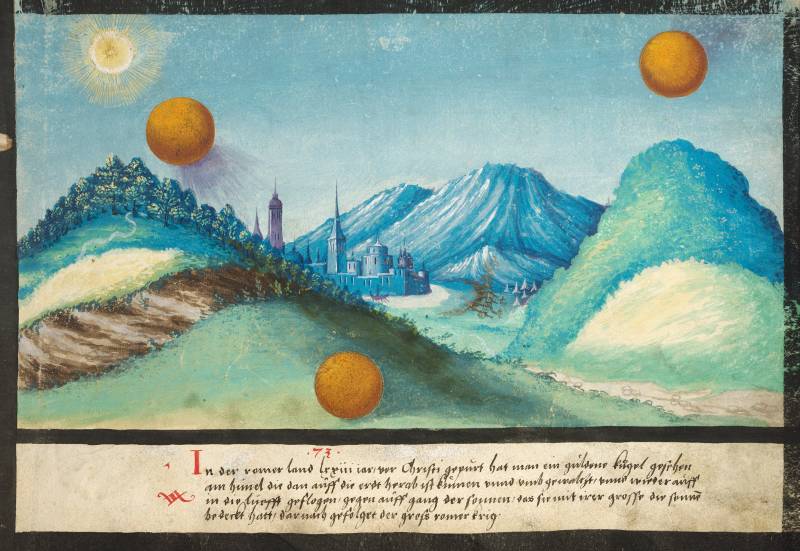 ·73·
In der romer land lxxiii iar vor Christi gepurt hat man ein guldene kugel gesehen
am himel die dan auff die erdt herab ist kumen unnd umb gewalest unnd wider auff
in die lufft geflogen gegen auff gang der sonnen das sie mit irer grosse die sonnen
bedeckt hatt darnach gefolget der gross romer krig